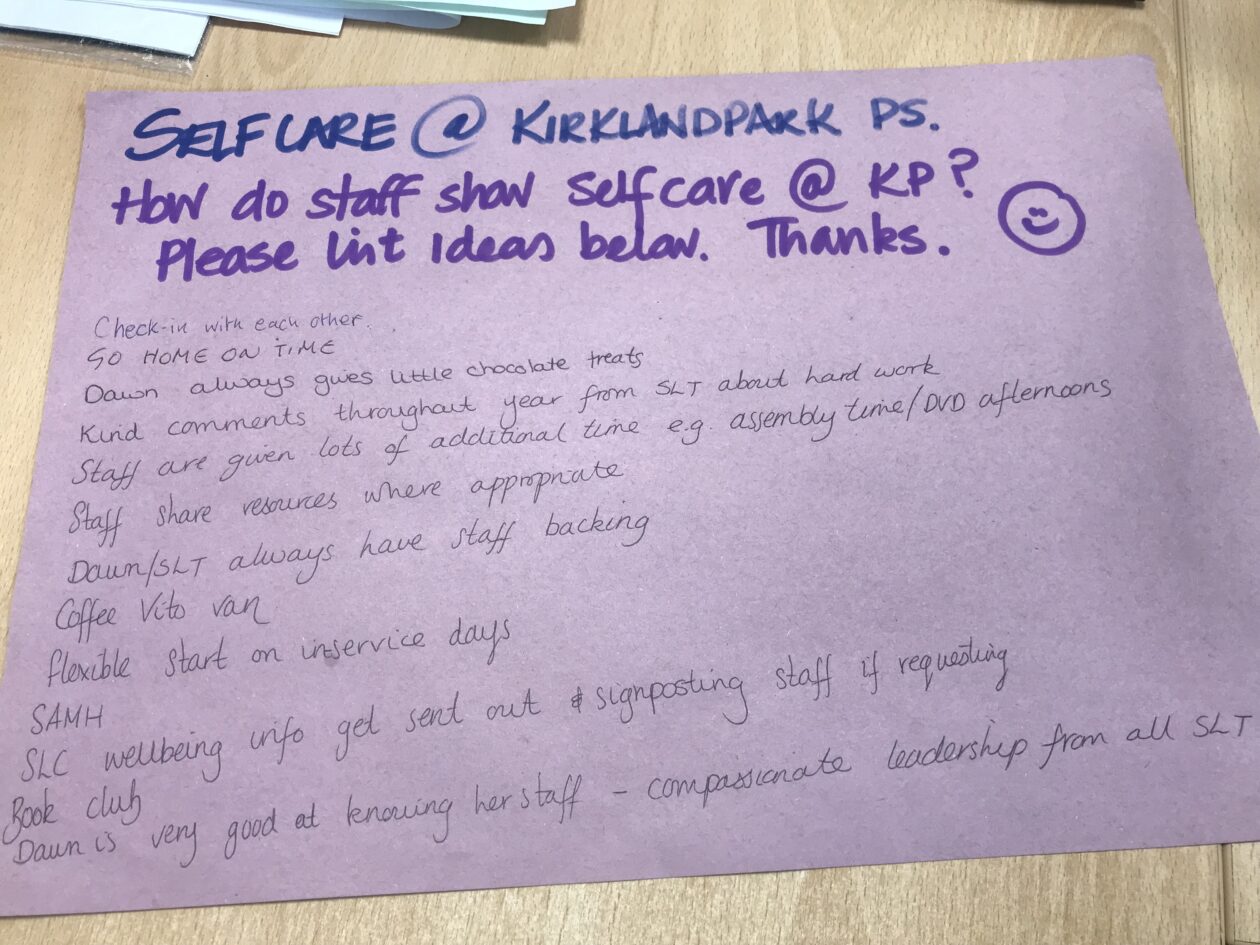 SELFCARE @ KIRKLANDPARK PS.
How do staff show selfcare @ KP?
Please list ideas below. Thanks.
Check-in with each other.
GO HOME ON TIME
Dawn always gives little chocolate treats
Kind comments throughout year from SLT about hard work
Staff are given lots of additional time e.g. assembly time/DVD afternoons
Staff share resources where appropriate
Dawn/SLT always have staff backing
Coffee Vito van
flexible start on inservice days
SAMH
SLC wellbeing info get sent out & signposting staff if requesting
Book club
Dawn is very good at knowing her staff - compassionate leadership from all SLT